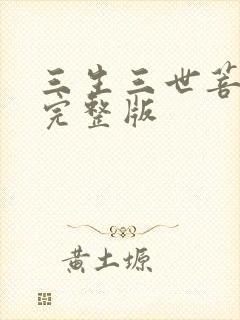 三生三世菩
完整版
黄土塬